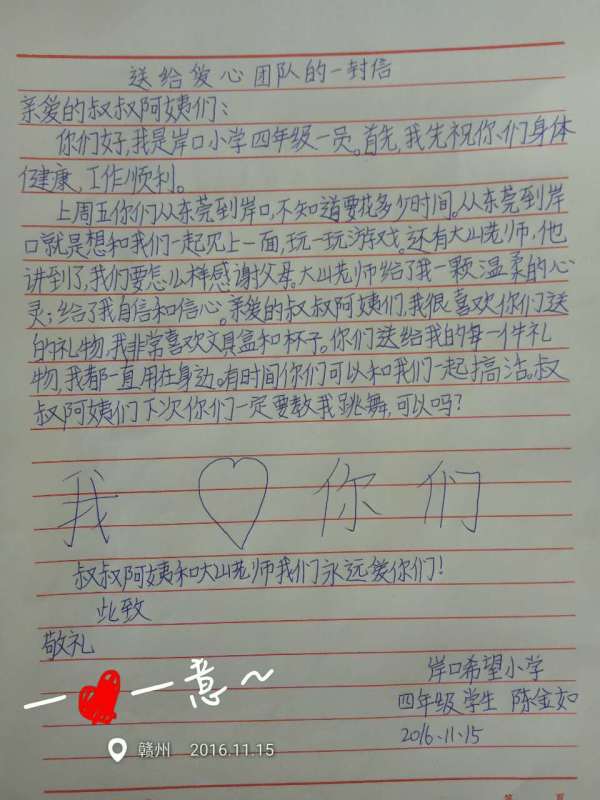 送给爱心团队的一封信
亲爱的叔叔阿姨们:
你们好,我是岸口小学四年级一员。首先,我先祝你们身体
健康,工作顺利。
上周五你们从东莞到岸口,不知道要花多少时间。从东莞到岸
口就是想和我们一起见上一面,玩一玩游戏。还有大山老师,他
讲到了,我们要怎么样感谢父母。大山老师给了我一颗温柔的心
灵;给了我自信和信心。亲爱的叔叔阿姨们,我很喜欢你们送
的礼物,我非常喜欢文具盒和杯子。你们送给我的每一件礼
物,我都一直用在身边。有时间你们可以和我们一起搞洁。叔
叔阿姨们下次你们一定要教我跳舞,可以吗?
我 ♡ 你们
叔叔阿姨和大山老师我们永远爱你们!
此致
敬礼
岸口希望小学
四年级学生 陈金如
2016.11.15
一❤一意~
赣州 2016.11.15
第 页